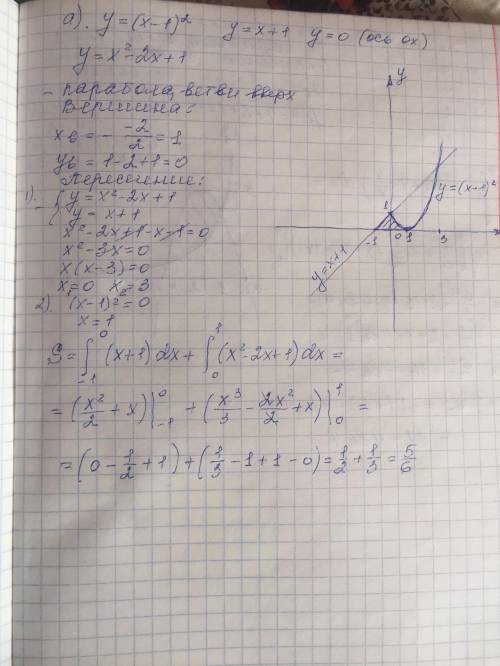 а). y=(x-1)² y=x+1 y=0 (ось ох)
y=x²-2x+1
- парабола, ветви вверх
Вершина:
xв = - -2/2 = 1
yв = 1-2+1=0
Пересечение:
1). { y=x²-2x+1
{ y=x+1
x²-2x+1-x-1=0
x²-3x=0
x(x-3)=0
x₁=0 x₂=3
2). (x-1)²=0
x=1
y
y=(x-1)²
1
-1 0 1 3
y=x+1
S=∫₋₁⁰ (x+1)dx + ∫₀¹ (x²-2x+1)dx =
= (x²/2 + x)|₋₁⁰ + (x³/3 - 2x²/2 + x)|₀¹ =
= (0 - 1/2 + 1) + (1/3 - 1 + 1 - 0) = 1/2 + 1/3 = 5/6